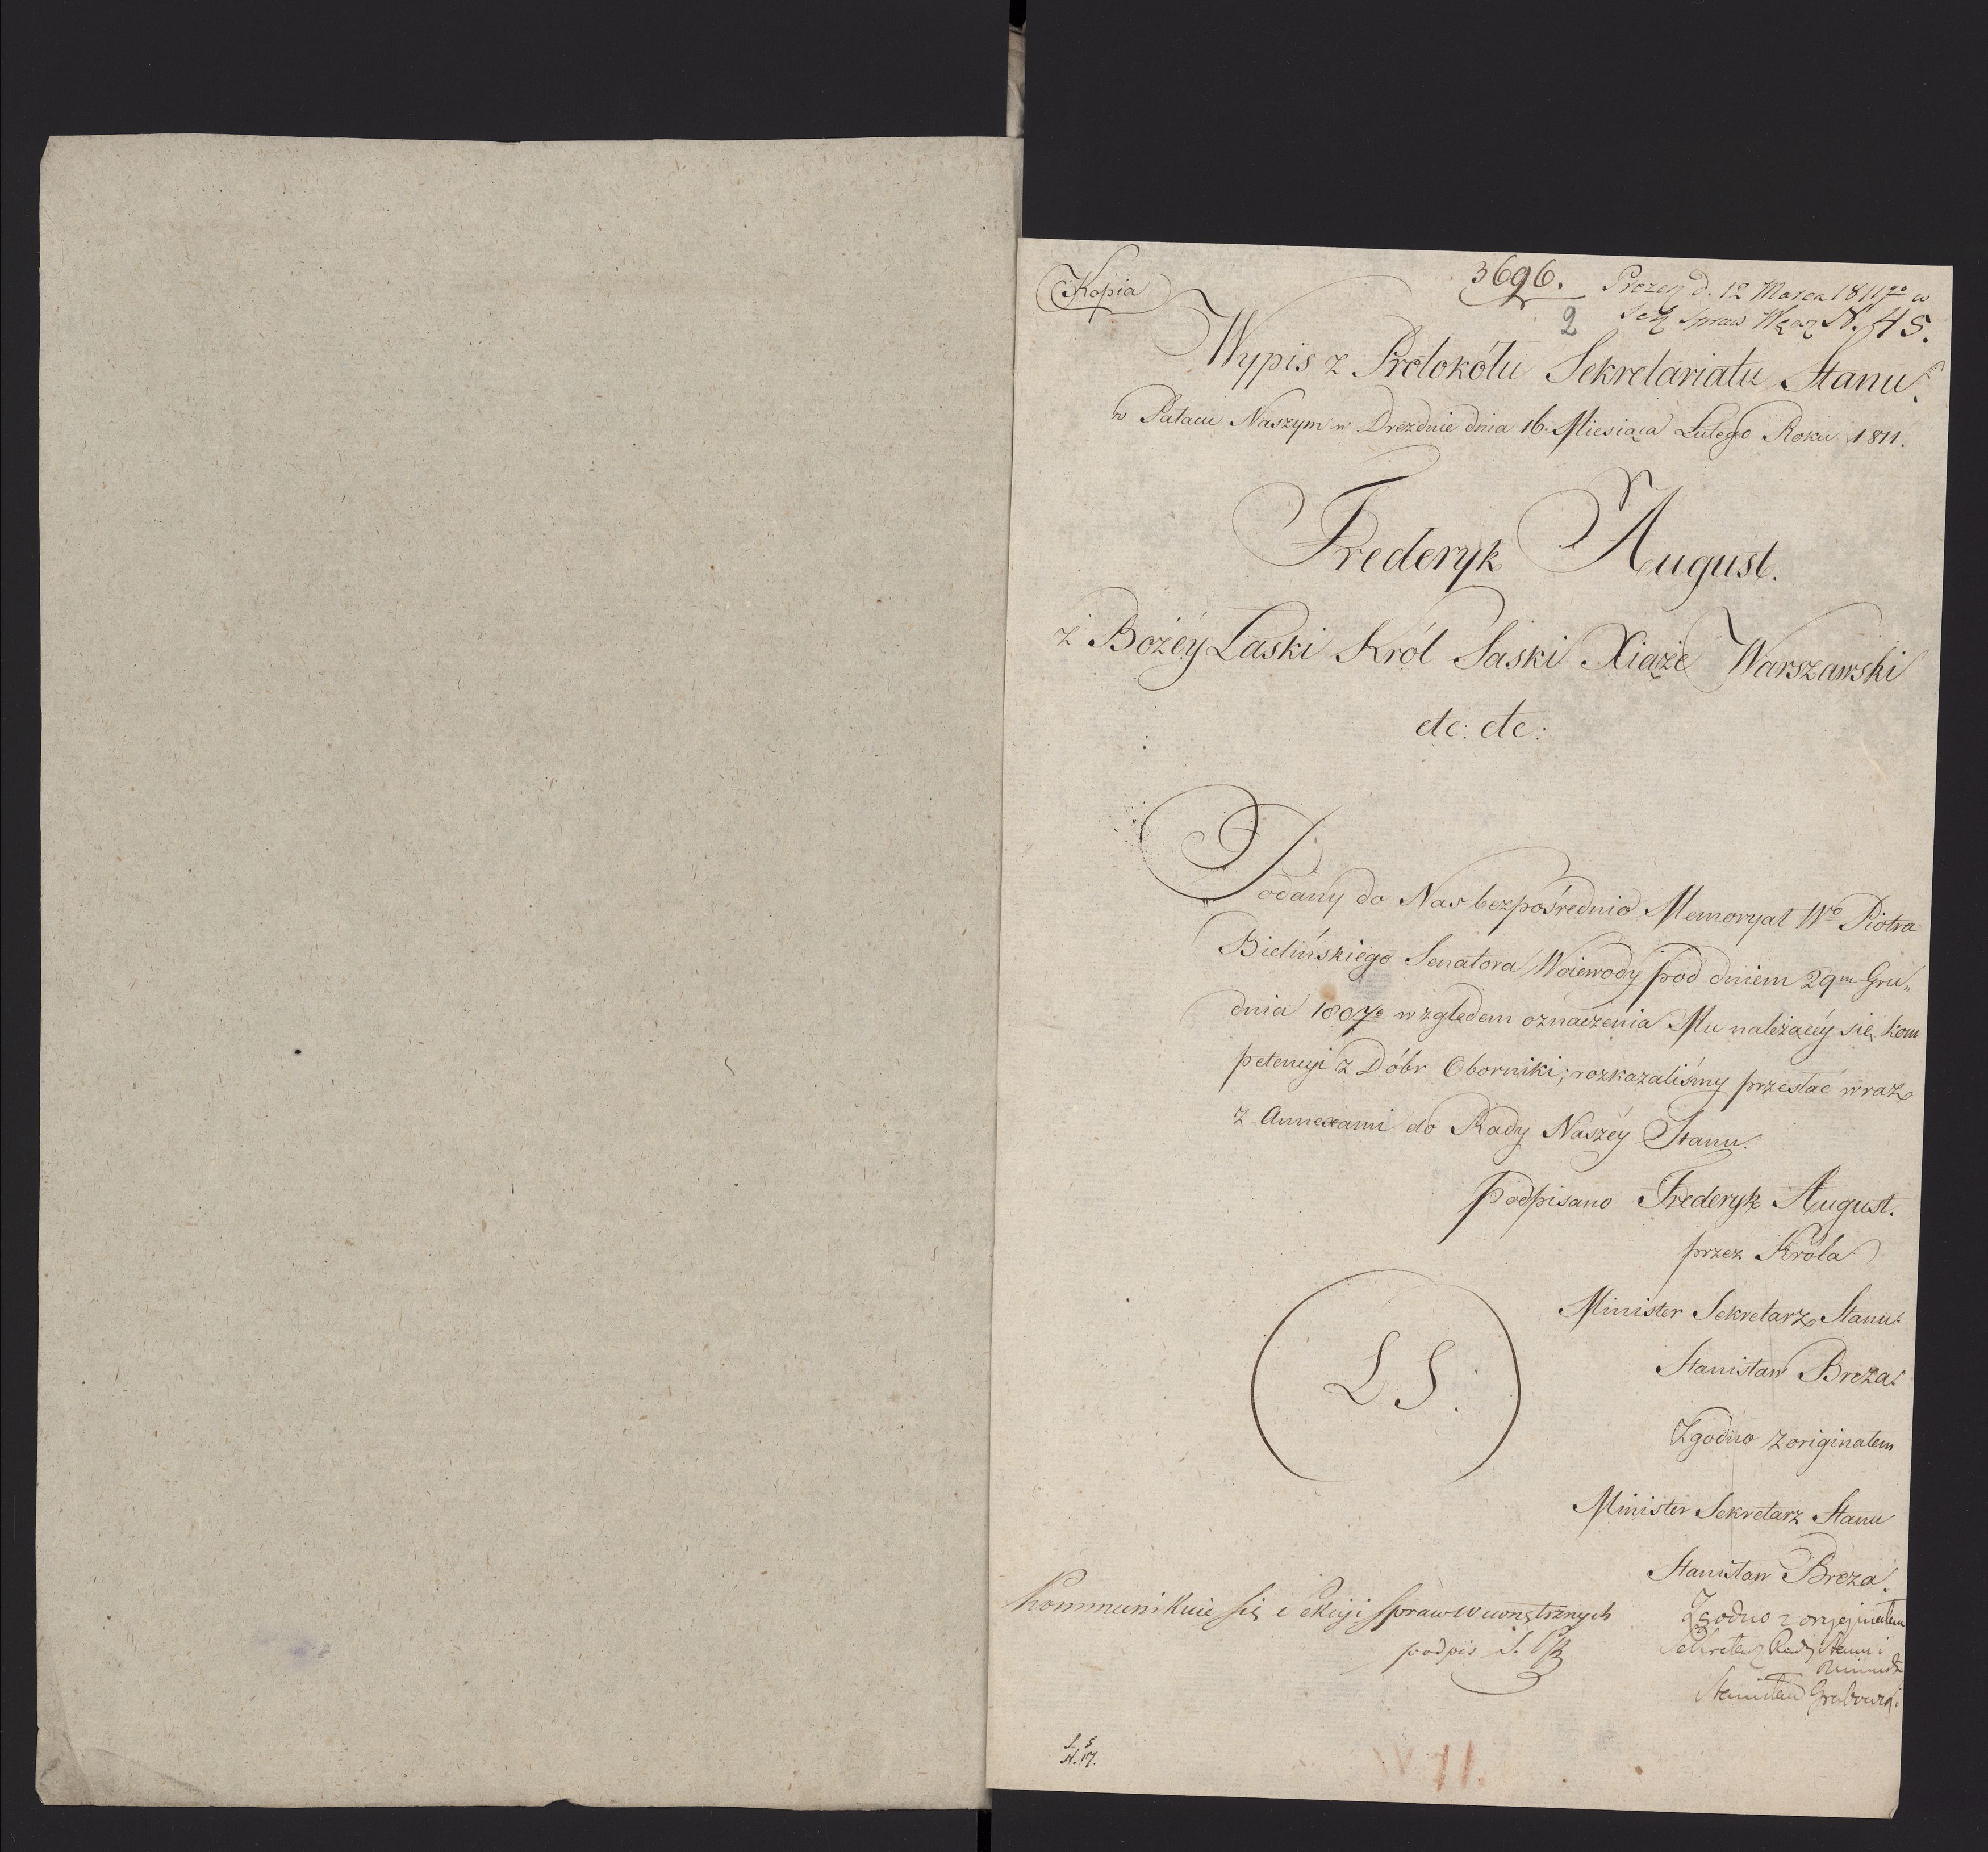 Kopia
3696.
Prezen d. 12 Marca 1811go w
Sek Spraw Wew N. 45.
2
Wypis z Protokółu Sekretariatu Stanu.
w Pałacu Naszym w Dreźdnie dnia 16. Miesiąca Lutego Roku 1811.
Frederyk August.
z Bożéy Łaski Król Saski Xiąże Warszawski
etc: etc:
Podany do Nas bezpośrednio Memoryał Wo Piotra
Bielińskiego Senatora Woiewody pod dniem 29m Gru„
dnia 1807o względem oznaczenia Mu należącéy się kom
petencyi z Dóbr Oborniki; rozkazaliśmy przesłać wraz
z Annexami do Rady Naszéy Stanu.
podpisano Frederyk August.
przez Króla
Minister Sekretarz Stanu.
Stanisław Breza.
LS.
Zgodno z originałem
Minister Sekretarz Stanu
Stanisław Breza.
Kommunikuie się Sekcyi Spraw wewnętrznych
podpis S.
Zgodno z oryginałem
Sekretarz Rady Stanu i
Ministr
Stanisław Grabowski
L. S
N. 17.
11.